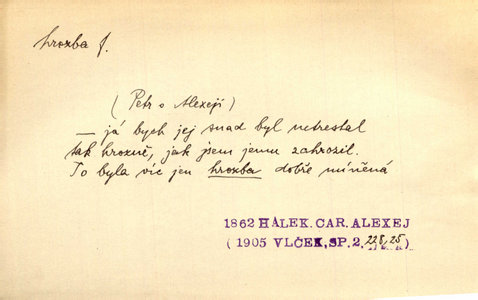 hrozba f.
(Petr o Alexeji)
— já bych jej snad byl netrestal
tak hrozně, jak jsem jemu zahrozil.
To byla víc jen hrozba dobře míněná
1862 HÁLEK. CAR. ALEXEJ
( 1905 VLČEK, SP. 2,